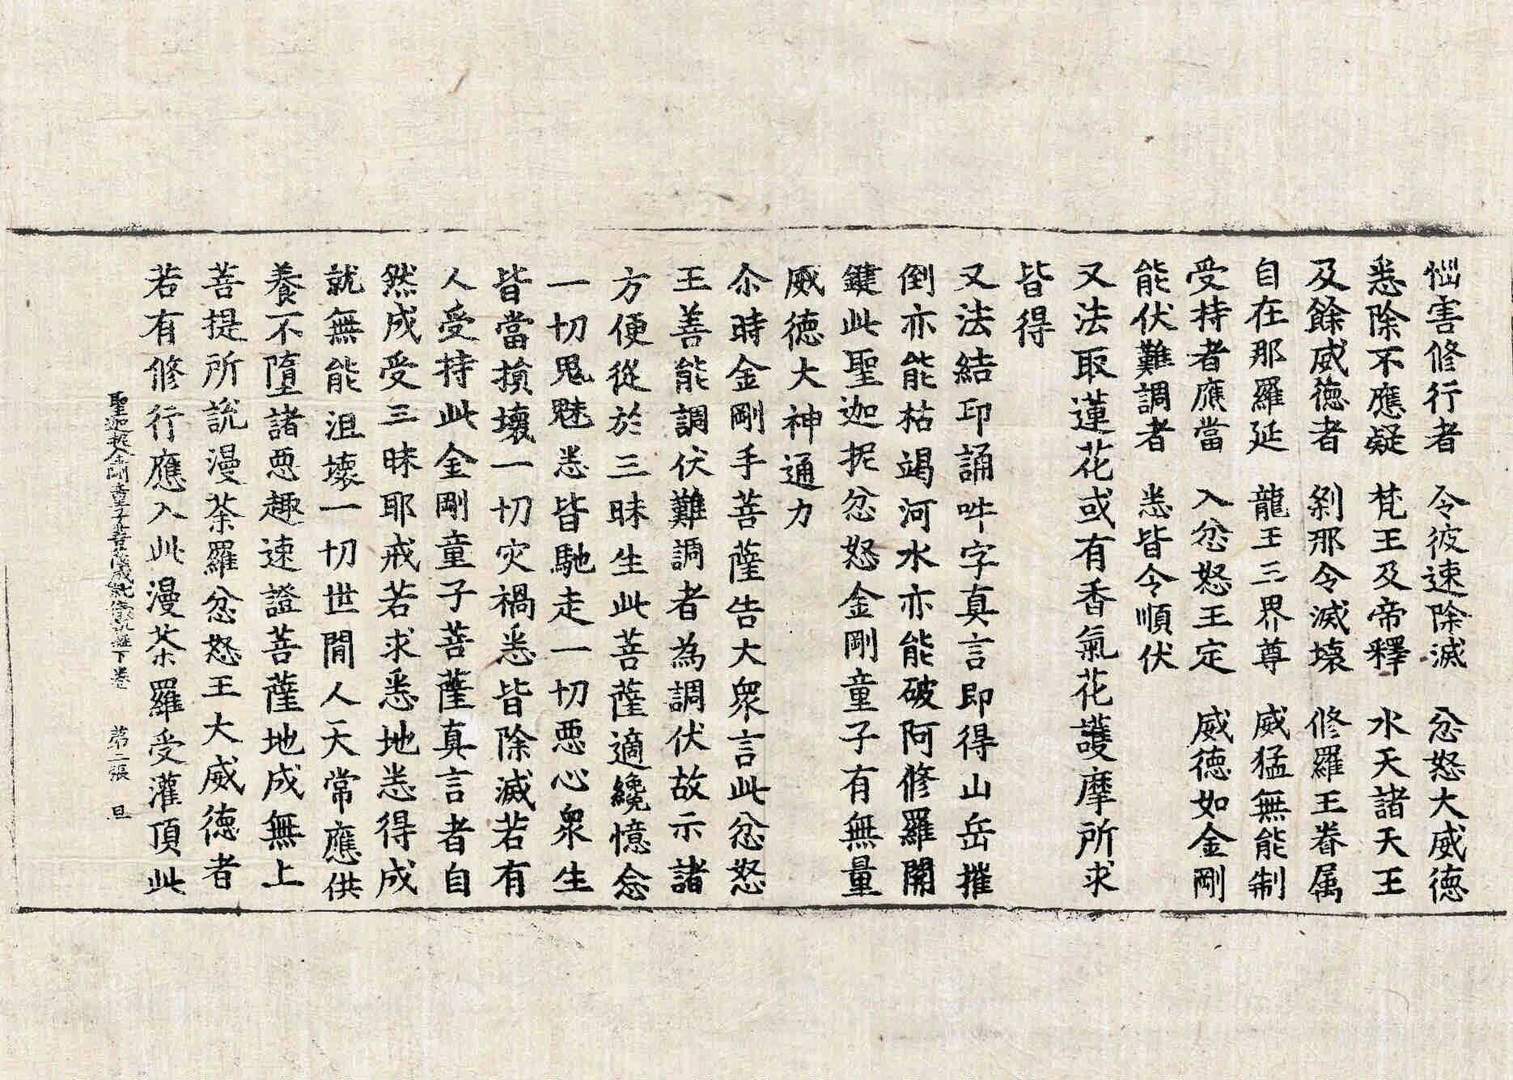 惱害修行者　令彼速除滅　忿怒大威德
悉除不應疑　梵王及帝釋　水天諸天王
及餘威德者　剎那令滅壞　修羅王眷属
自在那羅延　龍王三界尊　威猛無能制
受持者應當　入忿怒王定　威德如金剛
能伏難調者　悉皆令順伏
又法取蓮花或有香氣花護摩所求
皆得
又法結印誦吽字真言即得山岳摧
倒亦能枯竭河水亦能破阿修羅關
鍵此聖迦抳忿怒金剛童子有無量
威德大神通力
尒時金剛手菩薩告大衆言此忿怒
王善能調伏難調者為調伏故示諸
方便從於三昧生此菩薩適纔憶念
一切鬼魅悉皆馳走一切惡心衆生
皆當損壞一切灾禍悉皆除滅若有
人受持此金剛童子菩薩真言者自
然成受三昧耶戒若求悉地悉得成
就無能沮壞一切世間人天常應供
養不墮諸惡趣速證菩薩地成無上
菩提所說漫荼羅忿怒王大威德者
若有修行應入此漫荼羅受灌頂此
聖迦抳金剛童子菩薩成就儀軌經下卷　第二張　旦